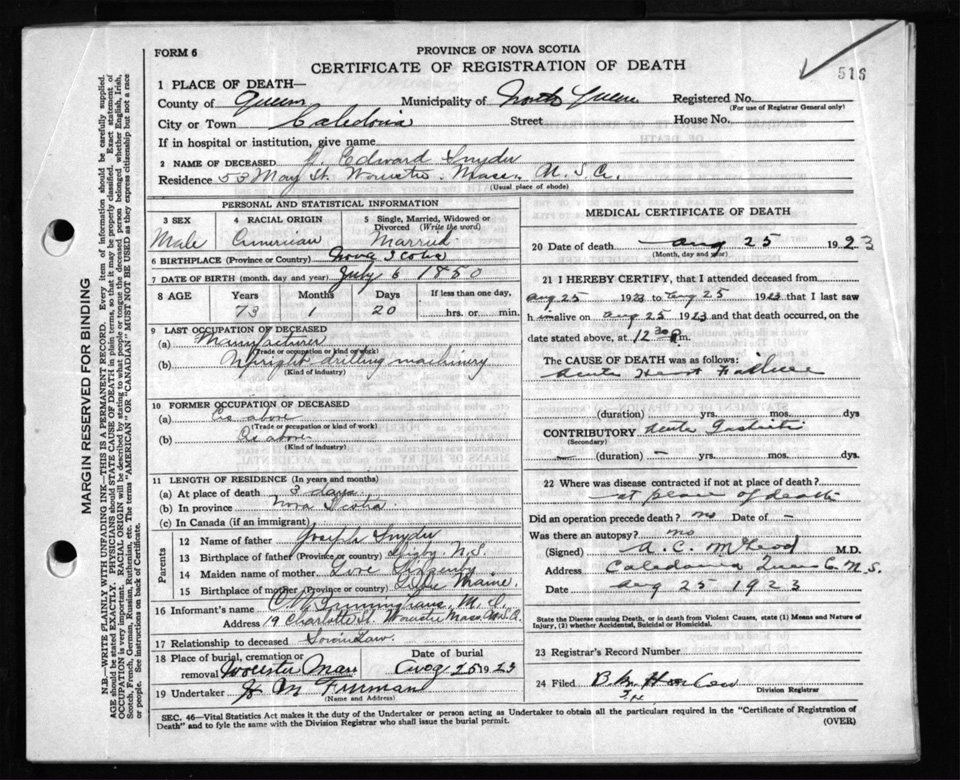 FORM 6
PROVINCE OF NOVA SCOTIA
CERTIFICATE OF REGISTRATION OF DEATH
516
1 PLACE OF DEATH—
County of Queens Municipality of North Queens Registered No.
(For use of Registrar General only)
City or Town Caledonia Street House No.
If in hospital or institution, give name
2 NAME OF DECEASED Edward Snyder
Residence 53 May St. Worcester Mass. U.S.A.
(Usual place of abode)
PERSONAL AND STATISTICAL INFORMATION
3 SEX 4 RACIAL ORIGIN 5 Single, Married, Widowed or Divorced (Write the word)
Male American Married
6 BIRTHPLACE (Province or Country) Nova Scotia
7 DATE OF BIRTH (month, day and year) July 6 1850
8 AGE Years Months Days If less than one day,
73 1 20 hrs. or min.
9 LAST OCCUPATION OF DECEASED
(a) Manufacturer
(Trade or occupation or kind of work)
(b) Upright drilling machinery
(Kind of industry)
10 FORMER OCCUPATION OF DECEASED
(a) As above
(Trade or occupation or kind of work)
(b) As above
(Kind of industry)
11 LENGTH OF RESIDENCE (In years and months)
(a) At place of death 3 days
(b) In province Nova Scotia
(c) In Canada (if an immigrant)
Parents
12 Name of father Joseph Snyder
13 Birthplace of father (Province or country) Digby N.S.
14 Maiden name of mother
15 Birthplace of mother (Province or country) Maine.
16 Informant's name M.D.
Address 19 Charlotte St. Worcester Mass. U.S.A.
17 Relationship to deceased Son in law.
18 Place of burial, cremation or removal Worcester Mass Date of burial Aug 25 1923
19 Undertaker Freeman
(Name and Address)
MEDICAL CERTIFICATE OF DEATH
20 Date of death Aug 25 1923
(Month, day and year)
21 I HEREBY CERTIFY, that I attended deceased from
Aug 25 1923 to Aug 25 1923 that I last saw
him alive on Aug 25 1923 and that death occurred, on the
date stated above, at 12 30 P.m.
The CAUSE OF DEATH was as follows:
Acute Heart Failure
(duration) yrs. mos. dys
CONTRIBUTORY Acute Gastritis
(Secondary)
— (duration) — yrs. mos. dys.
22 Where was disease contracted if not at place of death?
at place of death
Did an operation precede death? no Date of —
Was there an autopsy? no
(Signed) A. C. McLeod M.D.
Address Caledonia Queens Co. N.S.
Date Aug 25 1923
State the Disease causing Death, or in death from Violent Causes, state (1) Means and Nature of Injury, (2) whether Accidental, Suicidal or Homicidal.
23 Registrar's Record Number
24 Filed
Division Registrar
SEC. 46—Vital Statistics Act makes it the duty of the Undertaker or person acting as Undertaker to obtain all the particulars required in the "Certificate of Registration of
Death" and to fyle the same with the Division Registrar who shall issue the burial permit.
(OVER)
MARGIN RESERVED FOR BINDING
N.B.—WRITE PLAINLY WITH UNFADING INK—THIS IS A PERMANENT RECORD. Every item of information should be carefully supplied.
AGE should be stated EXACTLY. PHYSICIANS should STATE CAUSE OF DEATH in plain terms, so that it may be properly classified. Exact statement of
OCCUPATION is very important. RACIAL ORIGIN will be described by stating to what people or tongue the deceased person belonged whether English, Irish,
Scotch, French, German, Russian, Ruthenian, etc. The terms "AMERICAN" or "CANADIAN" MUST NOT BE USED as they express citizenship but not a race
or people. See instructions on back of Certificate.